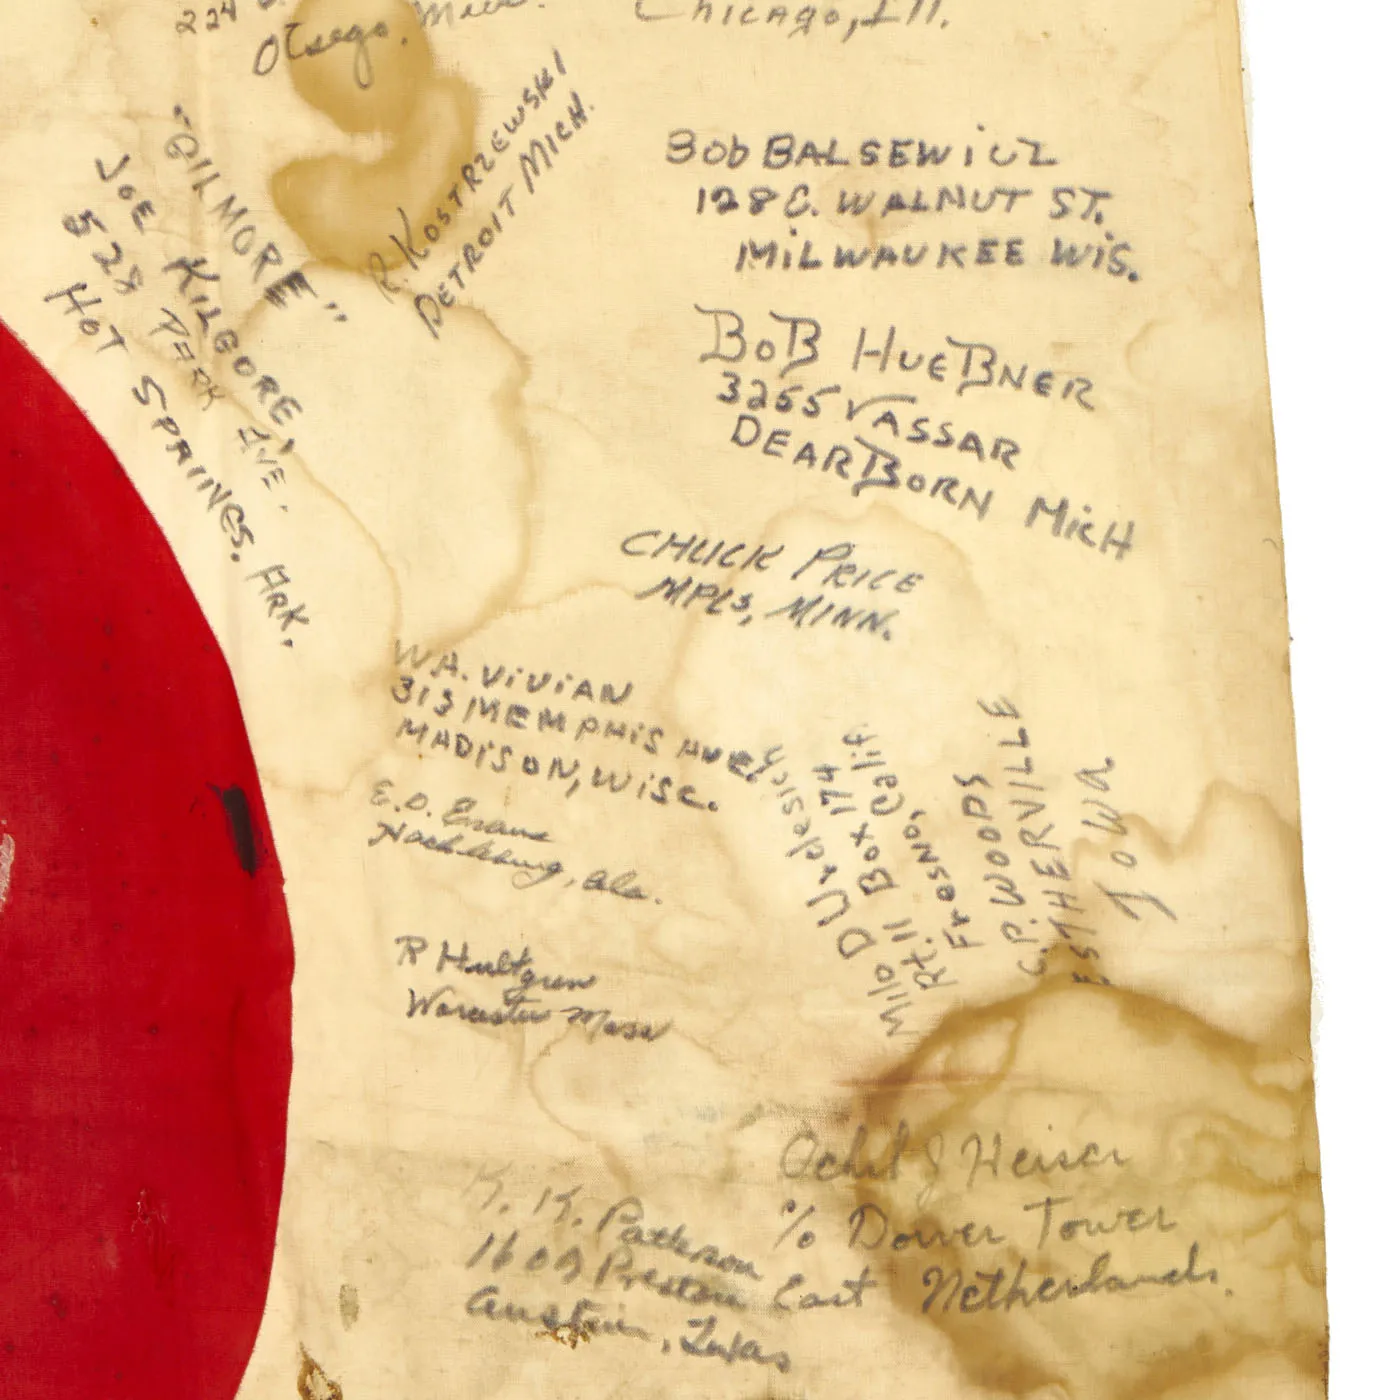 224
Otsego, Mich.
Chicago, Ill.
"GILMORE"
JOE KILGORE,
528 PARK AVE.
HOT SPRINGS, ARK.
R. KOSTRZEWSKI
DETROIT MICH.
BOb BALSEWiCZ
WALNUT ST.
MiLWAUKEE WiS.
BoB HUEBNER
3255 VASSAR
DEARBORN MicH
CHUCK PRICE
MPLS, MINN.
W.A. ViViAN
313 MEMPHiS AVE.
MADiSON, WiSC.
E.O. Evans
Ala.
R Hultgren
Worcester Mass
Milo D
Rt. 11 Box 174
Fresno, Calif.
C.P. WOODS
ESTHERVILLE
Iowa
J Heiser
% Dower Tower
East Netherlands.
K. K. Patterson
Preston
Austin, Texas